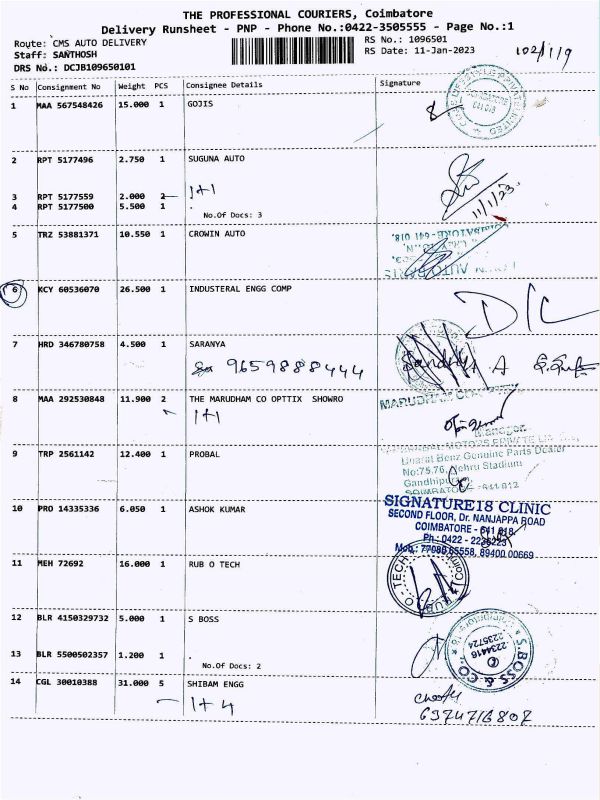 THE PROFESSIONAL COURIERS, Coimbatore
Delivery Runsheet - PNP - Phone No.:0422-3505555 - Page No.:1
Route: CMS AUTO DELIVERY
Staff: SANTHOSH
DRS No.: DCJB109650101
RS No.: 1096501
RS Date: 11-Jan-2023
102/119
S No Consignment No Weight PCS Consignee Details Signature
1 MAA 567548426 15.000 1 GOJIS
2 RPT 5177496 2.750 1 SUGUNA AUTO
3 RPT 5177559 2.000 2 1+1
4 RPT 5177500 5.500 1 .
No.Of Docs: 3
11/1/23
5 TRZ 53881371 10.550 1 CROWIN AUTO
COIMBATORE - 641 018.
6 KCY 60536070 26.500 1 INDUSTERAL ENGG COMP
D/C
7 HRD 346780758 4.500 1 SARANYA
9659888444
8 MAA 292530848 11.900 2 THE MARUDHAM CO OPTTIX SHOWRO
1+1
Manager
9 TRP 2561142 12.400 1 PROBAL
Bharat Benz Genuine Parts Dealer
No:75,76, Nehru Stadium
10 PRO 14335336 6.050 1 ASHOK KUMAR
SIGNATURE18 CLINIC
SECOND FLOOR, Dr. NANJAPPA ROAD
COIMBATORE - 641 018.
Ph.: 0422 -
89400 00669
11 MEH 72692 16.000 1 RUB O TECH
12 BLR 4150329732 5.000 1 S BOSS
13 BLR 5500502357 1.200 1 .
No.Of Docs: 2
S.BOSS & CO.
2234416
2235724
14 CGL 30010388 31.000 5 SHIBAM ENGG
1+4
6374716807